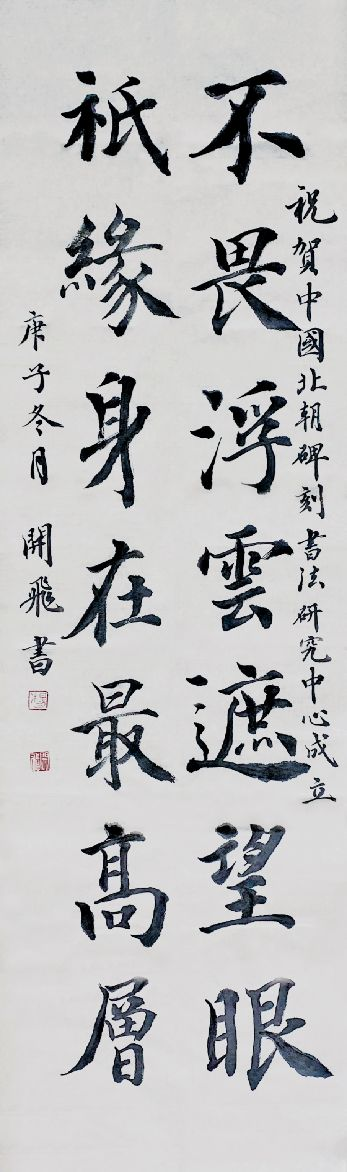 祝賀中國北朝碑刻書法研究中心成立
不畏浮雲遮望眼
祇緣身在最高層
庚子冬月 開飛書